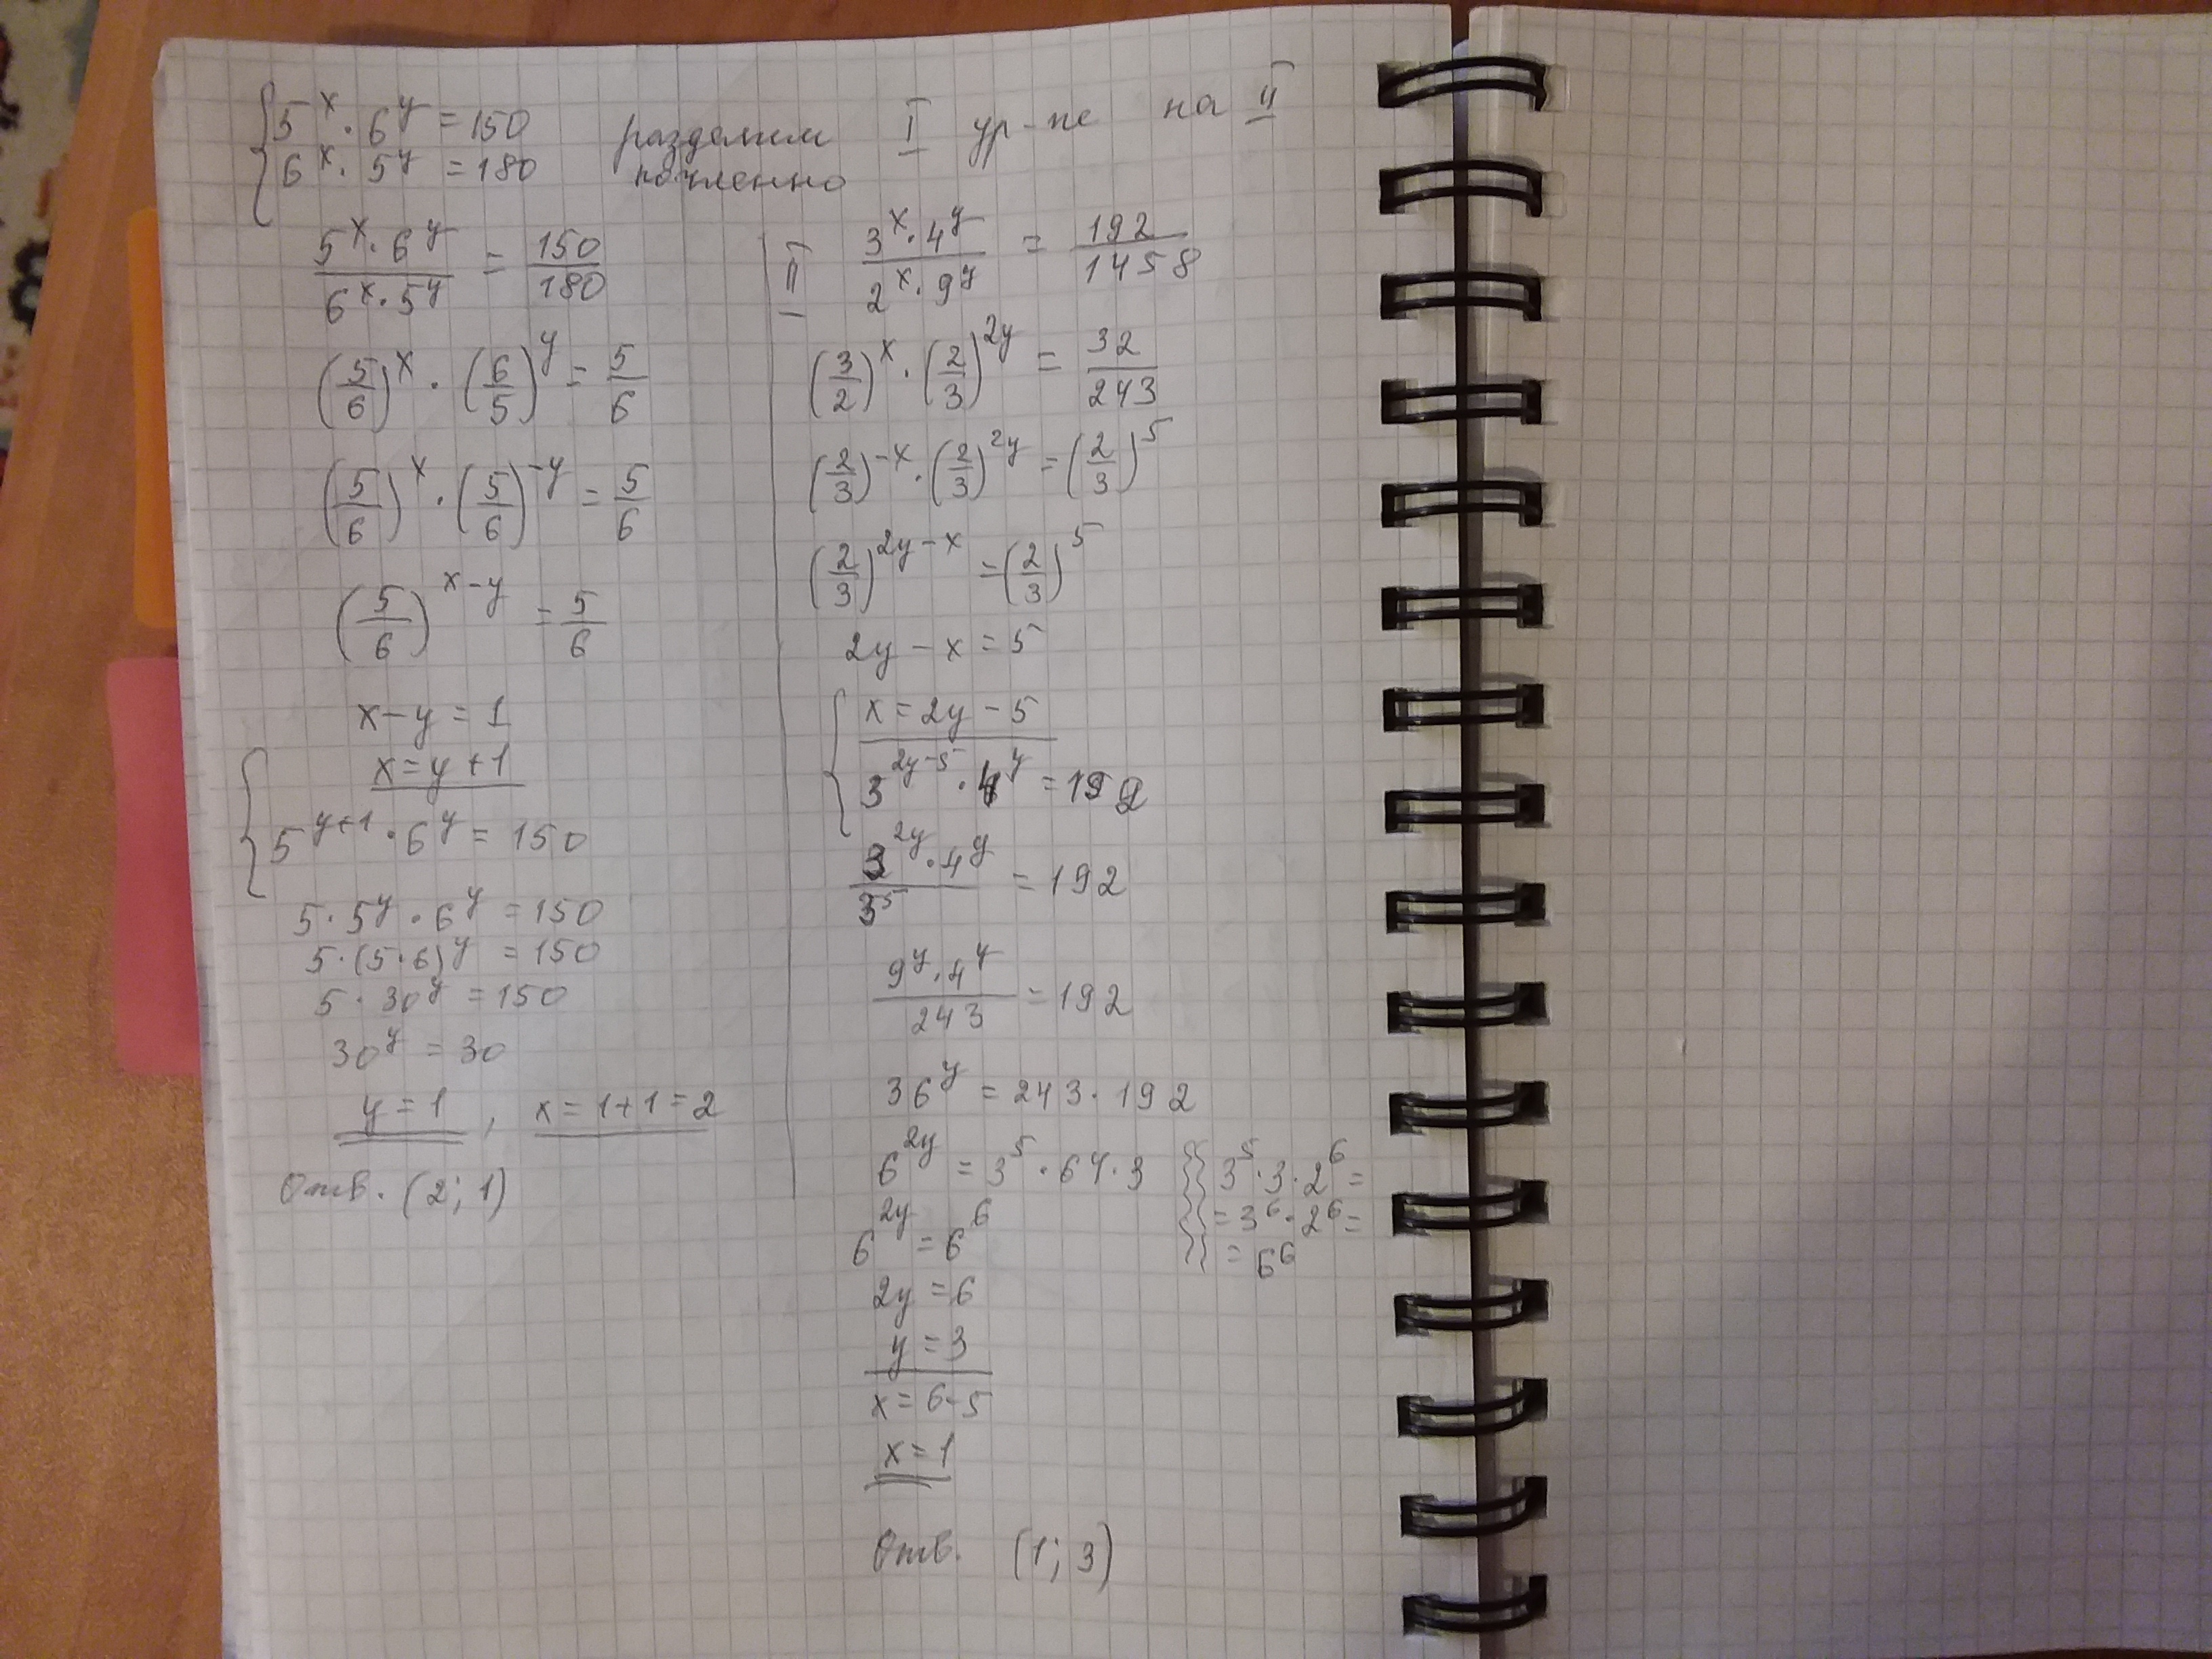 5^x · 6^y = 150 разделим I ур-ие на II
6^x · 5^y = 180 почленно
5^x · 6^y / 6^x · 5^y = 150/180
(5/6)^x · (6/5)^y = 5/6
(5/6)^x · (5/6)^-y = 5/6
(5/6)^x-y = 5/6
x-y = 1
x = y + 1
5^y+1 · 6^y = 150
5 · 5^y · 6^y = 150
5 · (5 · 6)^y = 150
5 · 30^y = 150
30^y = 30
y = 1, x = 1 + 1 = 2
Отв. (2; 1)
II 3^x · 4^y / 2^x · 9^y = 192/1458
(3/2)^x · (2/3)^2y = 32/243
(2/3)^-x · (2/3)^2y = (2/3)^5
(2/3)^2y-x = (2/3)^5
2y - x = 5
x = 2y - 5
3^2y-5 · 4^y = 192
3^2y · 4^y / 3^5 = 192
9^y · 4^y / 243 = 192
36^y = 243 · 192
6^2y = 3^5 · 64 · 3
6^2y = 6^6
2y = 6
y = 3
x = 6-5
x = 1
Отв. (1; 3)
3^5 · 3 · 2^6 =
= 3^6 · 2^6 =
= 6^6